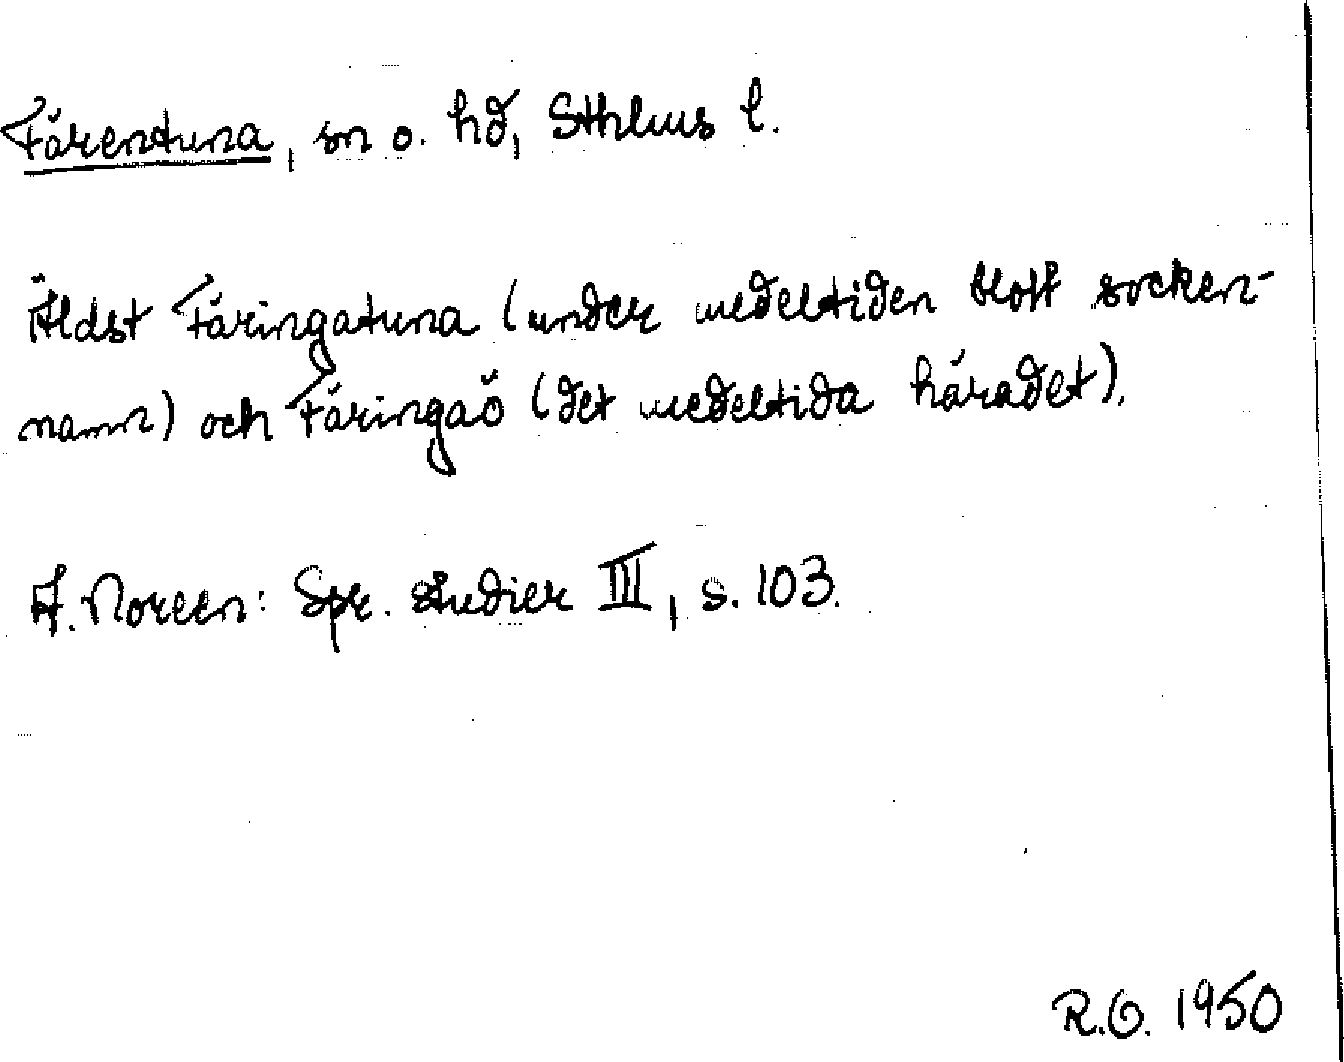 Färentuna, sn o. hd, Sthlms l.
Äldst Färingatuna (under medeltiden blott socken-
namn) och Färingaö (det medeltida häradet).
A. Noreen: Spr. studier III, s. 103.
R.O. 1950